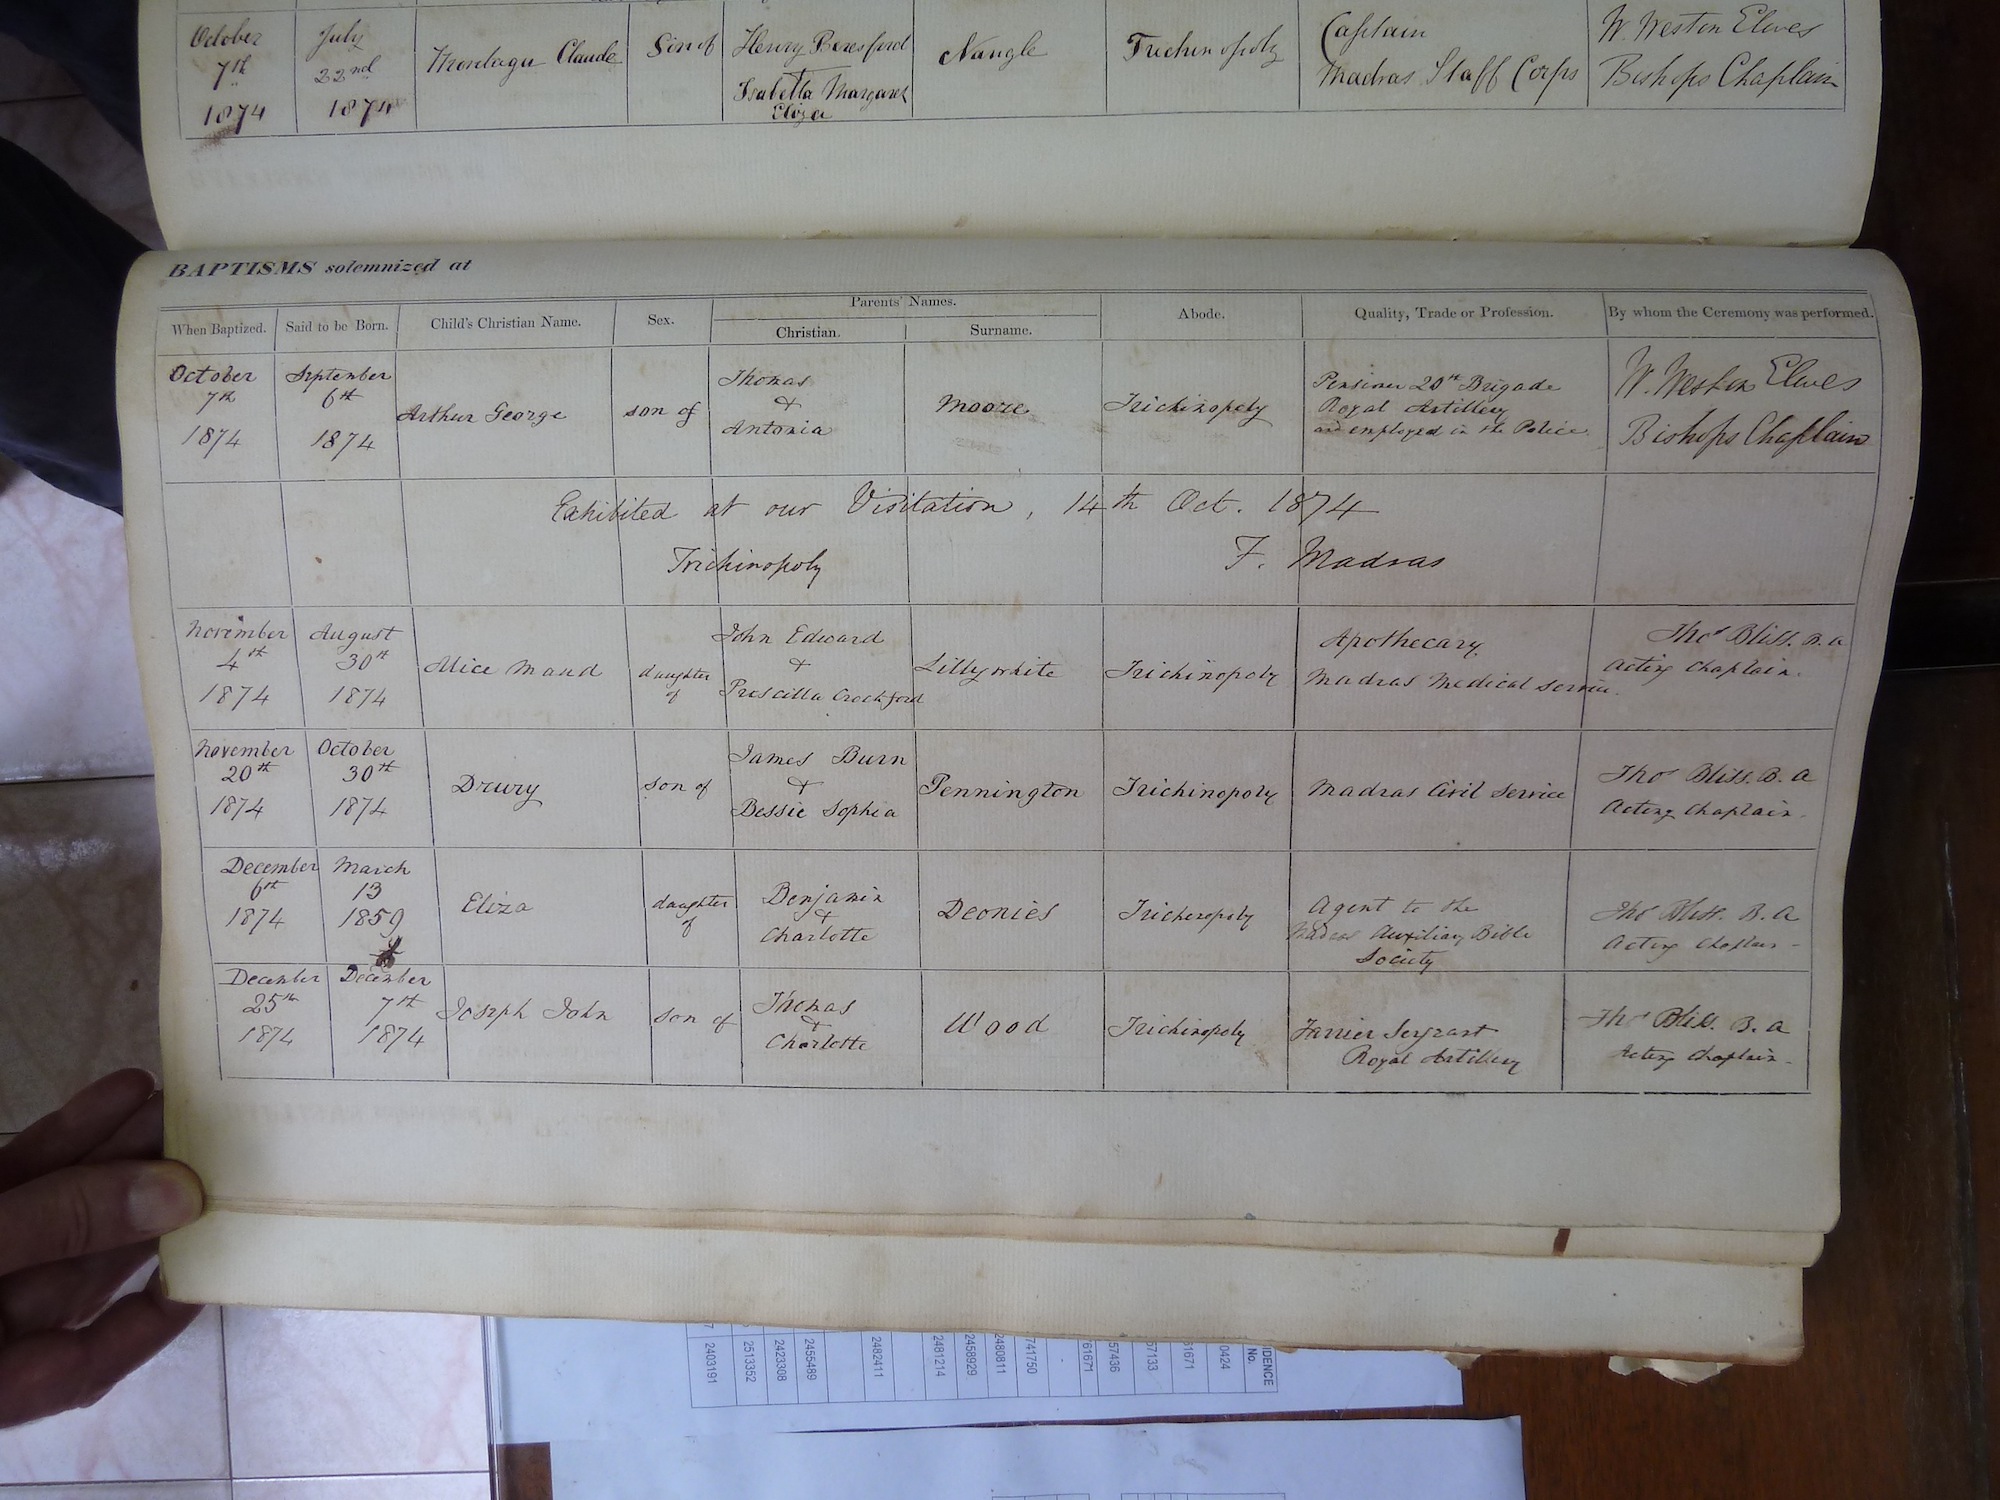 October July Montagu Claude Son of Henry Beresford Nangle Trichinopoly Captain W. Weston Elwes
7th 22nd Isabella Margaret Madras Staff Corps Bishops Chaplain
1874 1874 Eliza
BAPTISMS solemnized at
Parents' Names.
When Baptized. Said to be Born. Child's Christian Name. Sex. Christian. Surname. Abode. Quality, Trade or Profession. By whom the Ceremony was performed.
October September Thomas Pensioner 20th Brigade W. Weston Elwes
7th 6th Arthur George son of & Moore Trichinopoly Royal Artillery
1874 1874 Antonia and employed in the Police Bishops Chaplain
Exhibited at our Visitation, 14th Oct. 1874
Trichinopoly F. Madras
November August John Edward Apothecary Thos Bliss. B. A
4th 30th Alice Maud daughter & Lillywhite Trichinopoly Madras Medical Service. Acting Chaplain.
1874 1874 of Prescilla Crockford
November October James Burn
20th 30th Drury son of & Pennington Trichinopoly Madras Civil Service Thos Bliss. B. A
1874 1874 Bessie Sophia Acting Chaplain.
December March
6th 13 Eliza daughter Benjamin Deonies Trichinopoly Agent to the Thos Bliss. B. A
1874 1859 of & Madras Auxiliary Bible Acting Chaplain
Charlotte Society
December December
25th 7th Joseph John son of Thomas Wood Trichinopoly Farrier Sergeant Thos Bliss. B. A
1874 1874 & Royal Artillery Acting Chaplain
Charlotte
2403191
2513352
2423308
2455489
2482411
2481214
2458929
2480811
741750
61671
57436
57133
61671
0424
IDENCE
No.